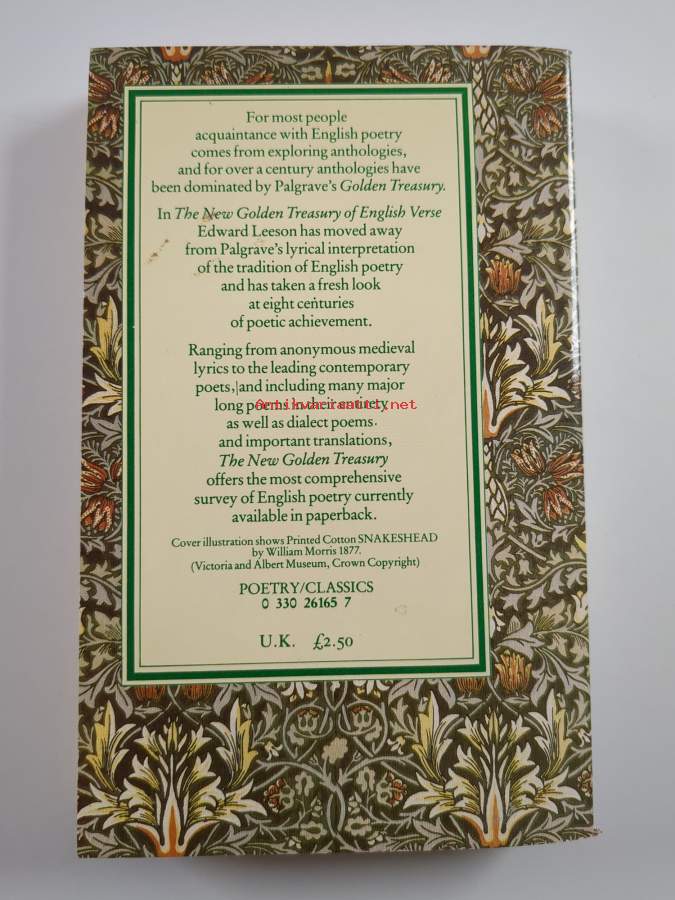 For most people
acquaintance with English poetry
comes from exploring anthologies,
and for over a century anthologies have
been dominated by Palgrave's Golden Treasury.
In The New Golden Treasury of English Verse
Edward Leeson has moved away
from Palgrave's lyrical interpretation
of the tradition of English poetry
and has taken a fresh look
at eight centuries
of poetic achievement.
Ranging from anonymous medieval
lyrics to the leading contemporary
poets, and including many major
long poems in their entirety,
as well as dialect poems
and important translations,
The New Golden Treasury
offers the most comprehensive
survey of English poetry currently
available in paperback.
Cover illustration shows Printed Cotton SNAKESHEAD
by William Morris 1877.
(Victoria and Albert Museum, Crown Copyright)
POETRY/CLASSICS
0 330 26165 7
U.K. £2.50